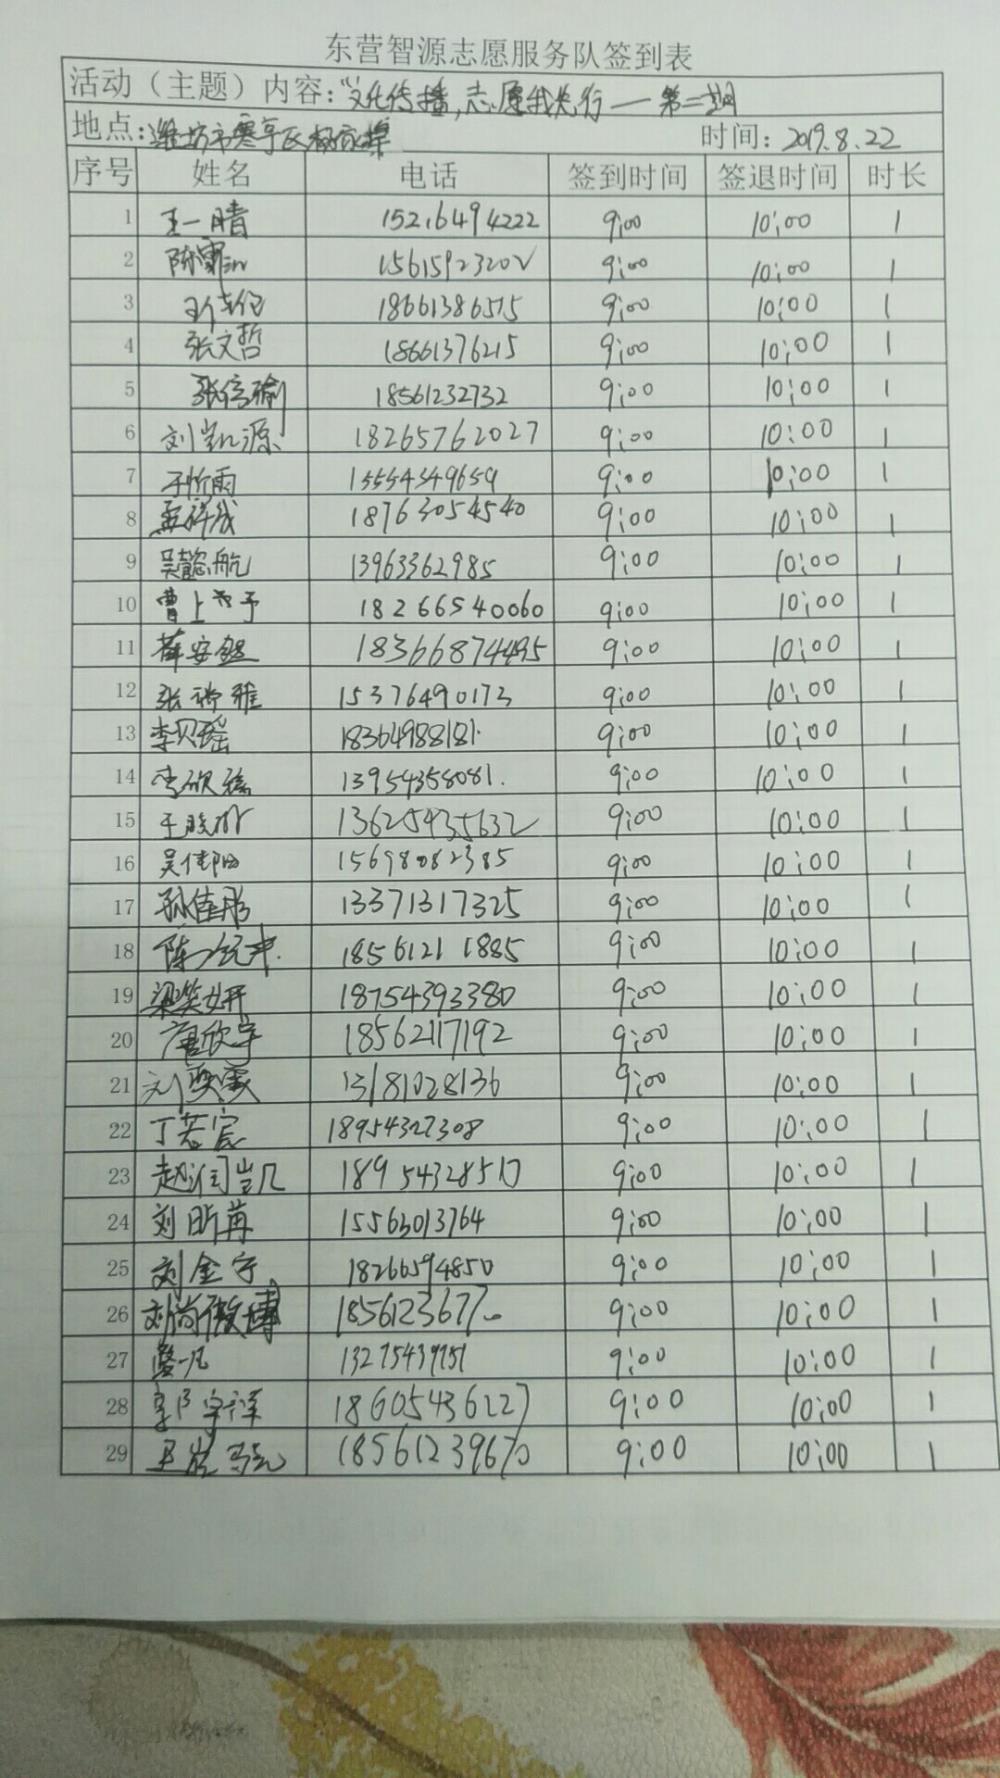 东营智源志愿服务队签到表
活动（主题）内容：“文化传播，志愿我先行——第二期
地点：潍坊市寒亭区杨家埠 时间：2019.8.22
序号 姓名 电话 签到时间 签退时间 时长
1 王一晴 15216494222 9:00 10:00 1
2 陈霏 15615923202 9:00 10:00 1
3 18661386515 9:00 10:00 1
4 张文哲 18661376215 9:00 10:00 1
5 张信瑜 18561232732 9:00 10:00 1
6 刘凯源 18265762027 9:00 10:00 1
7 于忻雨 15554349659 9:00 10:00 1
8 孟祥成 18763054540 9:00 10:00 1
9 吴懿航 13963362985 9:00 10:00 1
10 曹上 予 18266540060 9:00 10:00 1
11 薛安 18366874495 9:00 10:00 1
12 张 雅 15376490173 9:00 10:00 1
13 李贝瑶 18364988181. 9:00 10:00 1
14 李欣 13954358081. 9:00 10:00 1
15 13625435632 9:00 10:00 1
16 吴佳阳 15698082385 9:00 10:00 1
17 孙佳彤 13371317325 9:00 10:00 1
18 陈 18561211885 9:00 10:00 1
19 梁笑妍 18754393380 9:00 10:00 1
20 唐欣宇 18562117192 9:00 10:00 1
21 刘奕 13181028136 9:00 10:00 1
22 丁若宸 18954327308 9:00 10:00 1
23 赵润凯 9:00 10:00 1
24 刘昕苒 15563013764 9:00 10:00 1
25 刘金宁 18266594850 9:00 10:00 1
26 刘尚微博 9:00 10:00 1
27 一凡 13275439751 9:00 10:00 1
28 郭宇泽 18605436227 9:00 10:00 1
29 王 18561239670 9:00 10:00 1